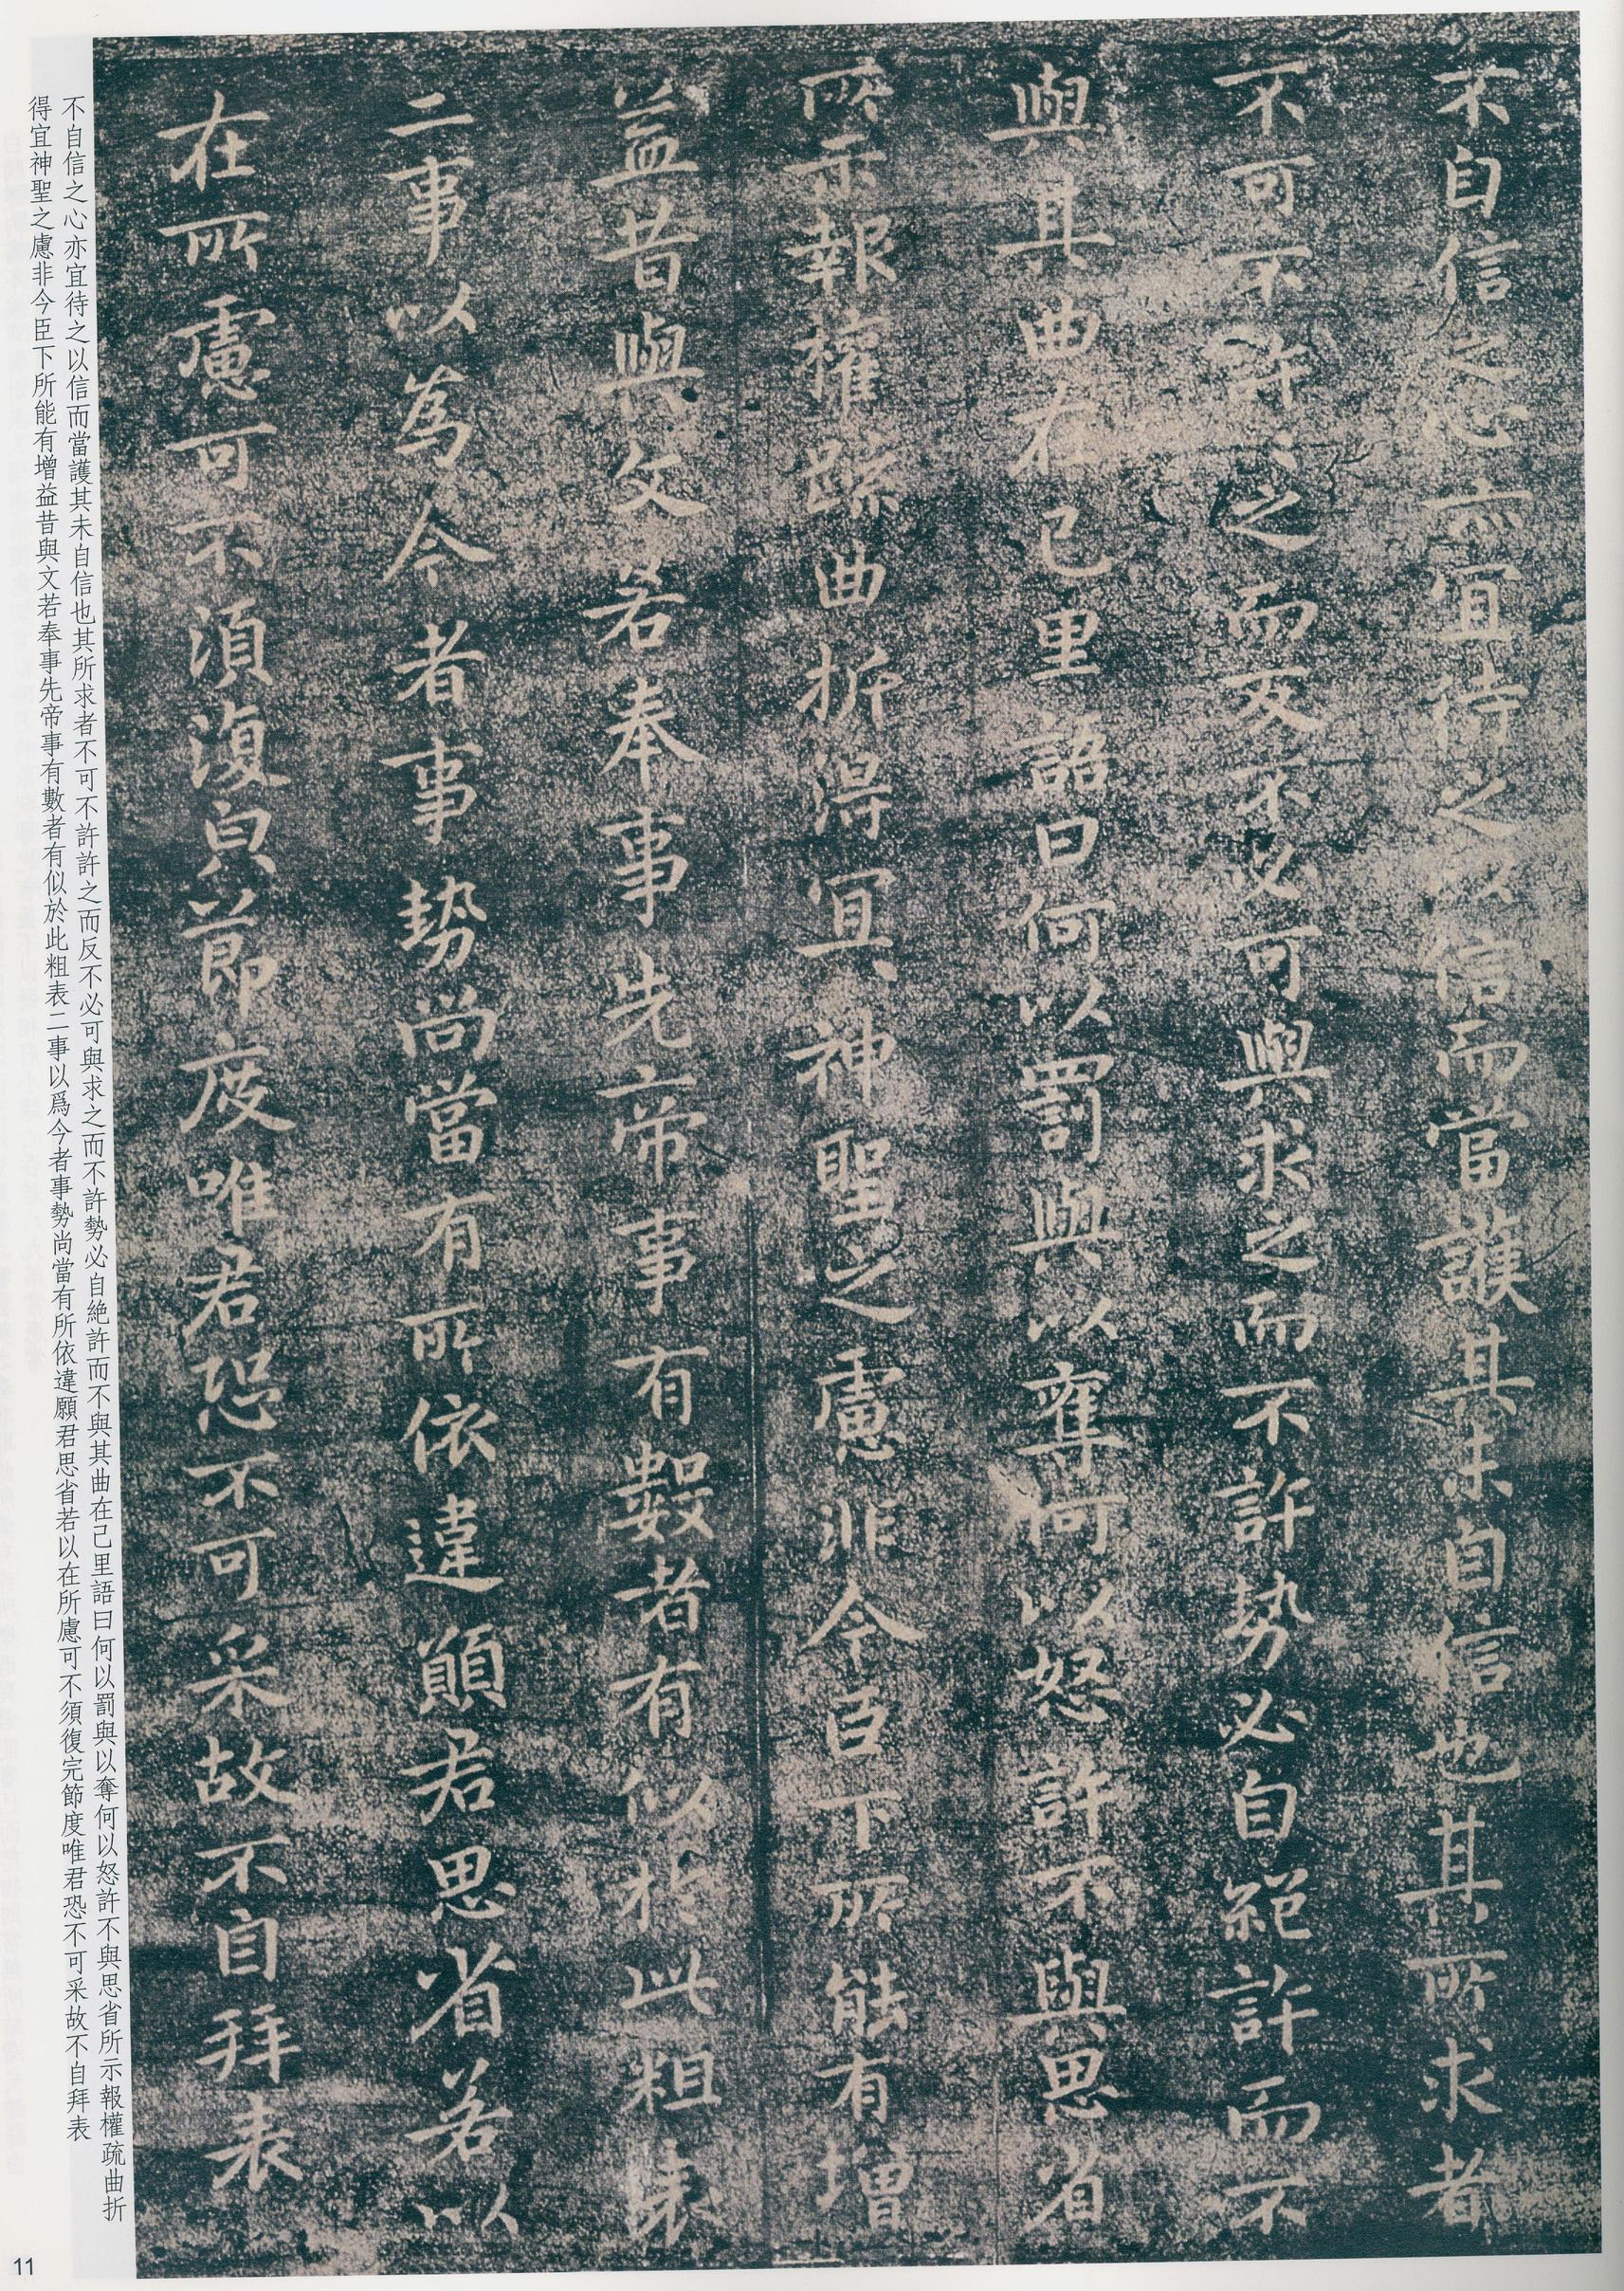 不自信之心亦宜待之以信而當護其未自信也其所求者
不可不許許之而反不必可與求之而不許勢必自絕許而不
與其曲在己里語曰何以罰與以奪何以怒許不與思省
所示報權疏曲折得宜神聖之慮非今臣下所能有增
益昔與文若奉事先帝事有數者有似於此粗表
二事以為今者事勢尚當有所依違願君思省若以
在所慮可不須復皃節度唯君恐不可采故不自拜表
不自信之心亦宜待之以信而當護其未自信也其所求者不可不許許之而反不必可與求之而不許勢必自絶許而不與其曲在己里語曰何以罰與以奪何以怒許不與思省所示報權疏曲折
得宜神聖之慮非今臣下所能有增益昔與文若奉事先帝事有數者有似於此粗表二事以爲今者事勢尚當有所依違願君思省若以在所慮可不須復完節度唯君恐不可采故不自拜表
11